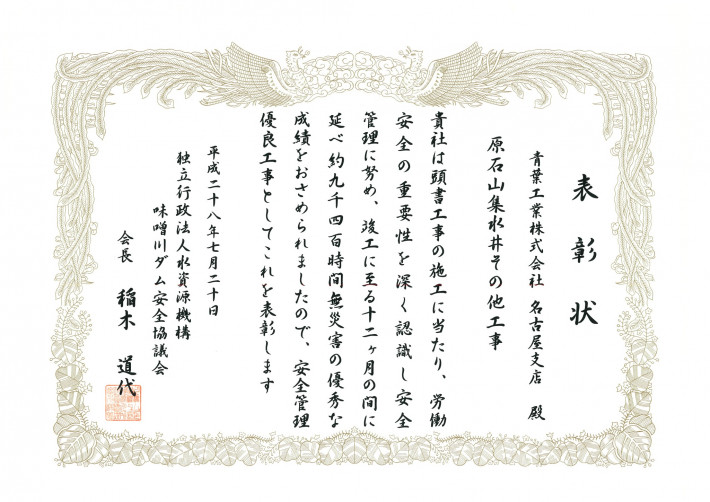 表彰状
青葉工業株式会社 名古屋支店 殿
原石山集水井その他工事
貴社は頭書工事の施工に当たり、労働
安全の重要性を深く認識し安全
管理に努め、竣工に至る十二ヶ月の間に
延べ約九千四百時間無災害の優秀な
成績をおさめられましたので、安全管理
優良工事としてこれを表彰します
平成二十八年七月二十日
独立行政法人水資源機構
味噌川ダム安全協議会
会長 稲木 道代